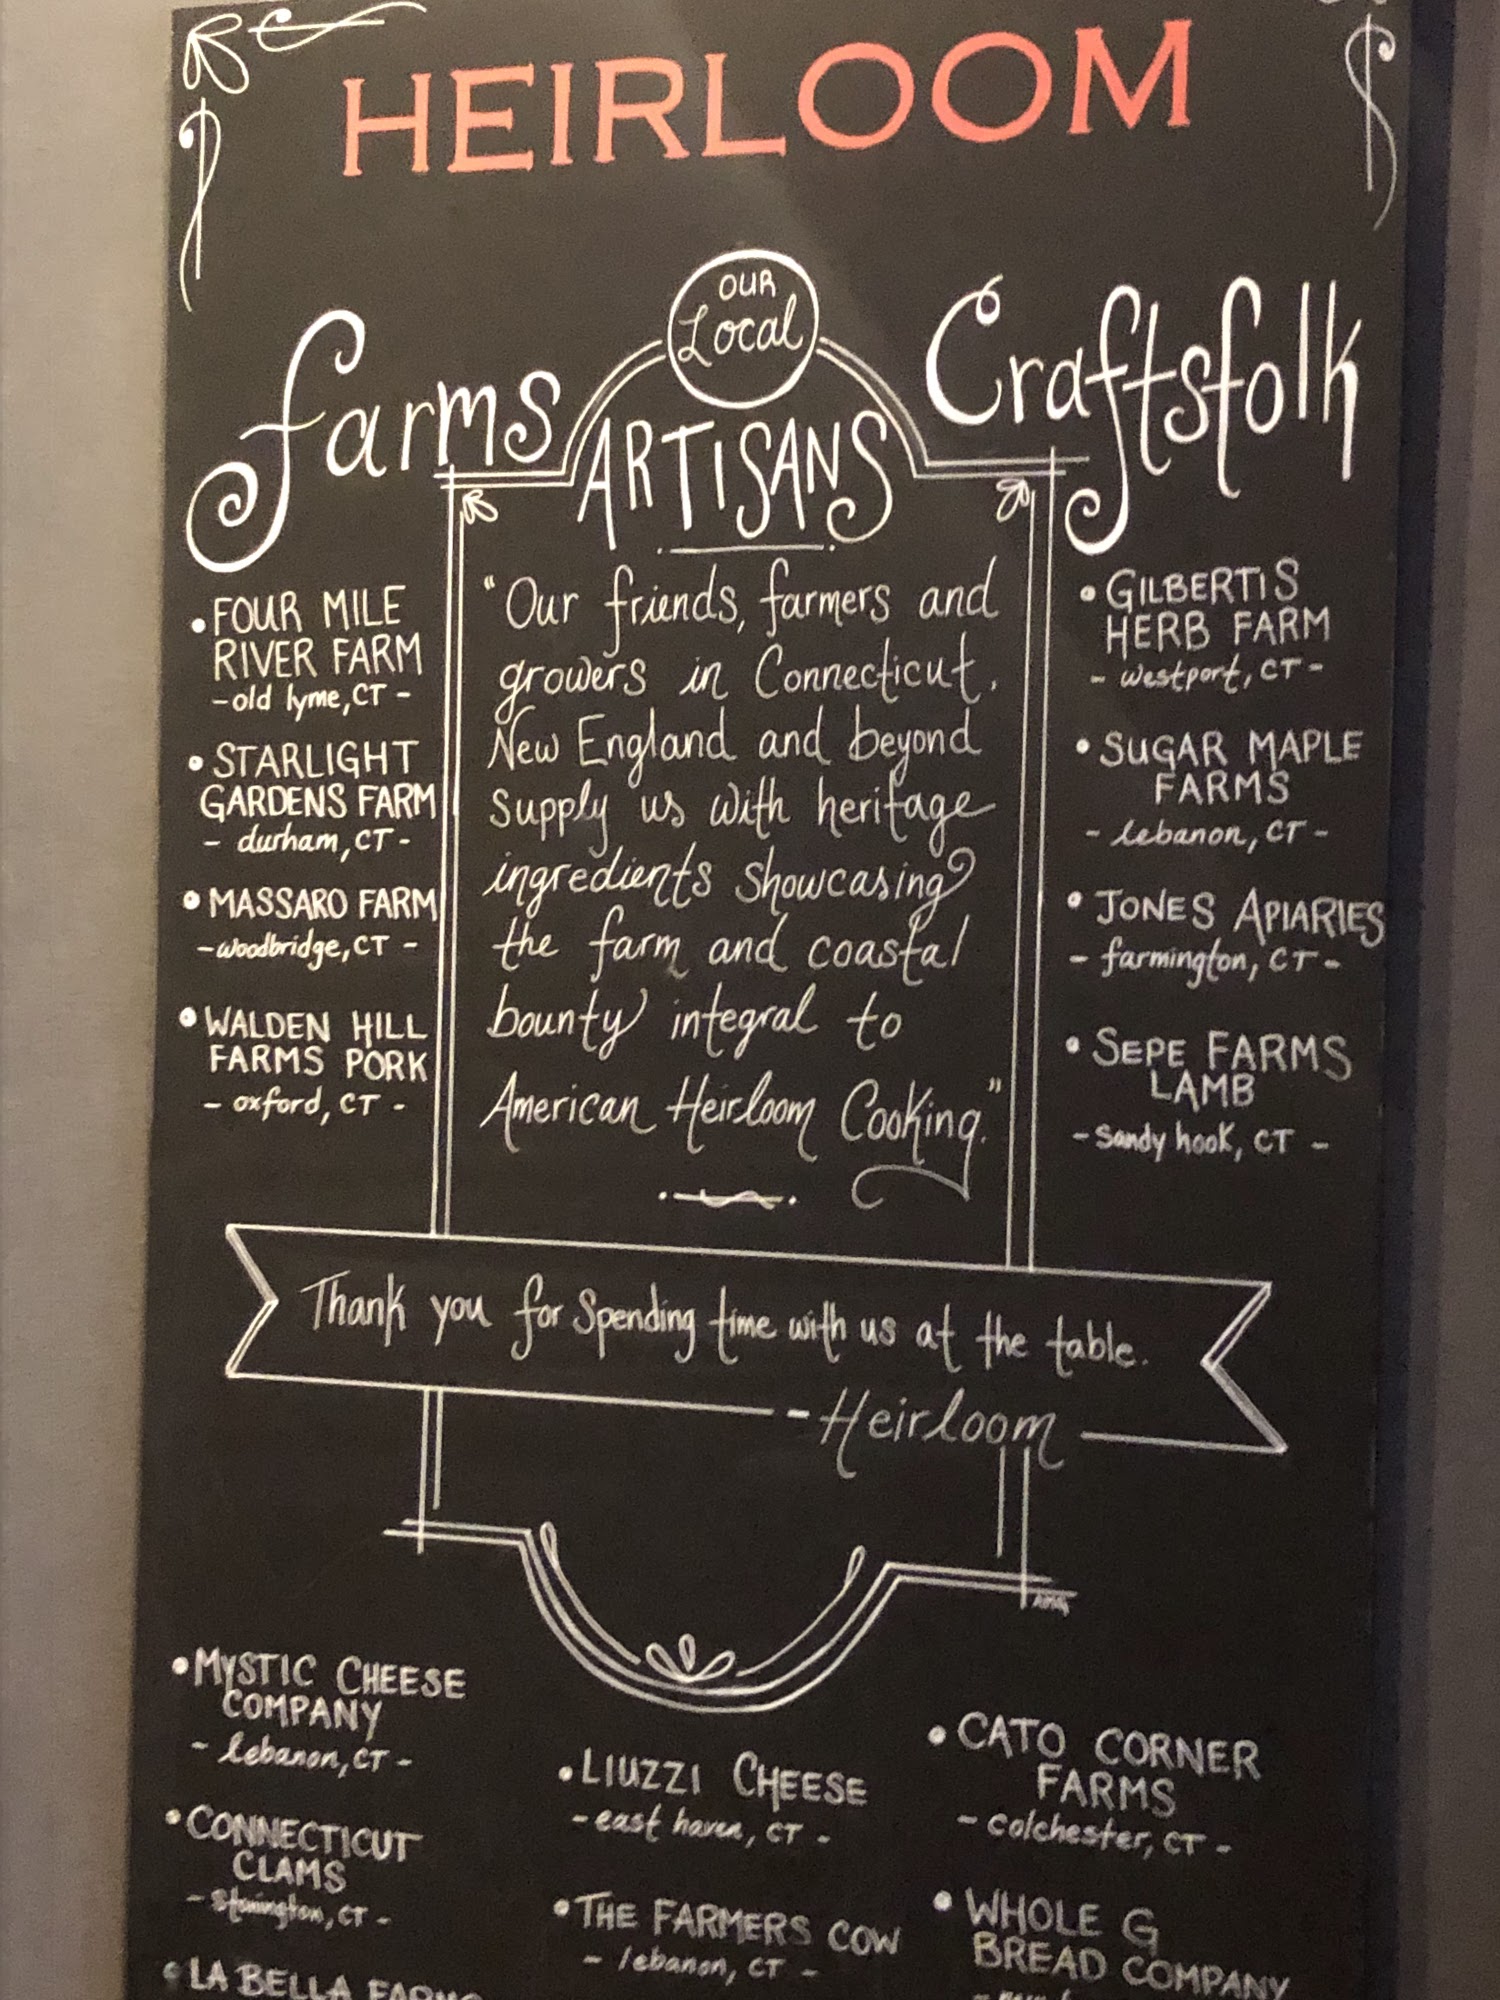 HEIRLOOM
farms
OUR
Local
ARTISANS
Craftsfolk
• FOUR MILE
RIVER FARM
- old lyme, CT -
• STARLIGHT
GARDENS FARM
- durham, CT -
• MASSARO FARM
- woodbridge, CT -
• WALDEN HILL
FARMS PORK
- oxford, CT -
"Our friends, farmers and
growers in Connecticut,
New England and beyond
supply us with heritage
ingredients showcasing
the farm and coastal
bounty integral to
American Heirloom Cooking."
• GILBERTIS
HERB FARM
- westport, CT -
• SUGAR MAPLE
FARMS
- lebanon, CT -
• JONES APIARIES
- farmington, CT -
• SEPE FARMS
LAMB
- Sandy hook, CT -
Thank you for Spending time with us at the table.
- Heirloom
• MYSTIC CHEESE
COMPANY
- lebanon, CT -
• CONNECTICUT
CLAMS
- stonington, CT -
• LA BELLA FARMS
• LIUZZI CHEESE
- east haven, CT -
• THE FARMERS COW
- lebanon, CT -
• CATO CORNER
FARMS
- colchester, CT -
• WHOLE G
BREAD COMPANY